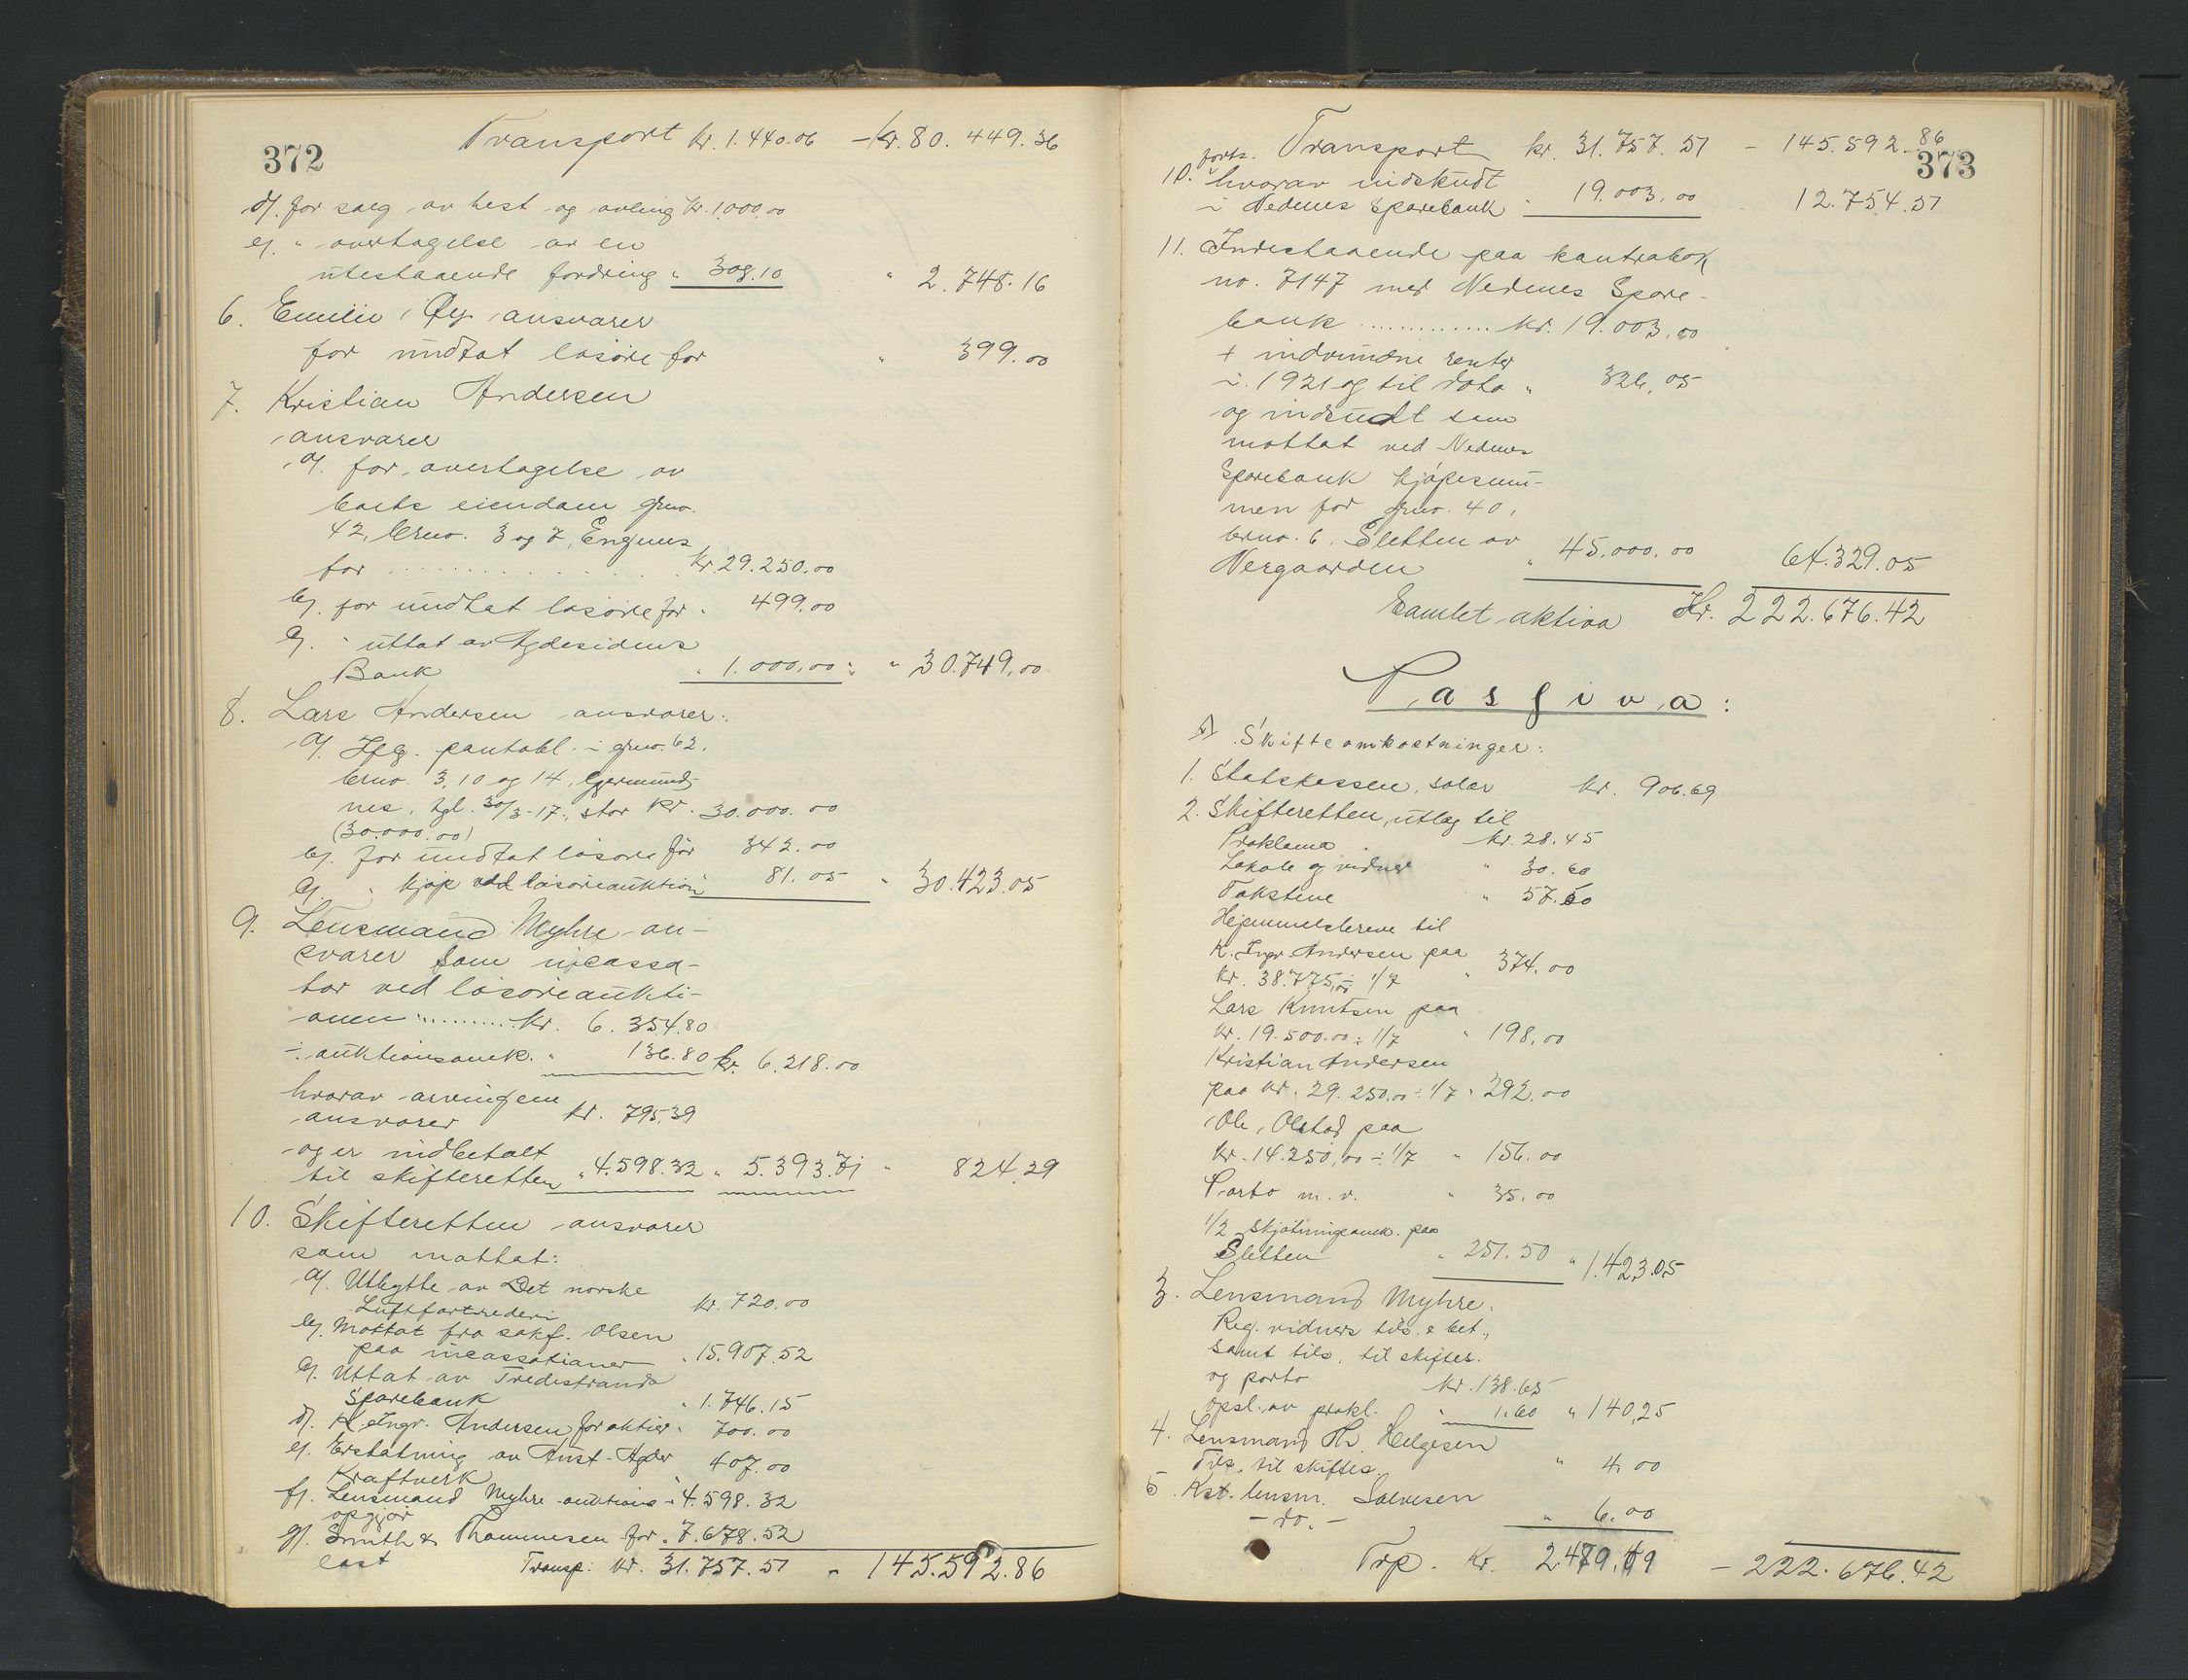 372
Transport kr. 1.440.06 - kr. 80.449.36
d/. for salg av hest og avling kr. 1.000,00
e/. " overtagelse av en
utestaaende fordring " 308.10 " 2.748.16
6. Emilie Øy ansvarer
for undtat løsøre for " 399.00
7. Kristian Andersen
ansvarer
a/. for overtagelse av
boets eiendom grno.
42, brno. 3 og 7, Engnes
for . . . . . . . . . . kr. 29.250.00
b/. for undtat løsøre for " 499.00
c/. " uttat av Agdesidens
Bank " 1.000,00 " 30.749,00
8. Lars Andersen ansvarer:
a/. Ifg. pantobl. i grno. 62,
brno. 3, 10 og 14, Gjermunds-
nes, tgl. 30/3-17, stor kr. 30.000.00
(30.000.00)
b/. for undtat løsøre for 342.00
c/. " kjøp ved løsøreauktion 81.05 " 30.423.05
9. Lensmand Myhre an-
svarer som incassa-
tor ved løsøreaukti-
onen .......... kr. 6.354.80
÷ auktionsomk. " 136.80 kr. 6.218.00
hvorav arvingene
ansvarer kr. 795,39
og er indbetalt
til skifteretten " 4.598.32 " 5.393.71 " 824.29
10. Skifteretten ansvarer
som mottat:
a/. Utbytte av Det norske
Luftfartrederi kr. 720.00
b/. Mottat fra sakf. Olsen
paa incassationer " 15.907.52
c/. Uttat av Tvedestrands
Sparebank " 1.746.15
d/. K. Ingv. Andersen for aktier " 700.00
e/. Erstatning av Aust-Agder
Kraftverk 407.00
f/. Lensmand Myhre auktions-
opgjør " 4.598.32
g/. Smith & Thommesen for
last " 7.678.52
Transp. kr. 31.757.51 - 145.592.86
373
forts. Transport kr. 31.757.51 - 145.592.86
10. hvorav indskudt
i Nedenes Sparebank " 19.003,00 12.754.51
11. Indestaaende paa kontrabok
no. 7147 med Nedenes Spare-
bank ............. kr. 19.003,00
+ indvundne renter
i 1921 og til dato " 326,05
og indsudt som
mottat ved Nedenes
Sparebank kjøpesum-
men for grno. 40,
brno. 6, Sletten av
Nergaarden " 45.000.00 64.329.05
Samlet aktiva Kr. 222.676.42
Passiva:
A) Skifteomkostninger:
1. Statskassen, salær kr. 906.69
2. Skifteretten, utlæg til
Proklama kr. 28.45
Lokale og vidner " 30.60
Takstene " 57.50
Hjemmelsbreve til
K. Ingv. Andersen paa
kr. 38.775,00 ÷ 1/7 " 374.00
Lars Knutsen paa
kr. 19.500.00 ÷ 1/7 " 198,00
Kristian Andersen
paa kr. 29.250,00 ÷ 1/7 " 292.00
Ole Olstad paa
kr. 14.250,00 ÷ 1/7 " 156.00
Porto m.v. " 35.00
1/2 skjøtningsomk. paa
Sletten " 251.50 " 1.423.05
3. Lensmand Myhre.
Reg. vidners tils. & bet.,
samt tils. til skiftes.
og porto kr. 138.65
Opsl. av prokl. " 1.60 " 140,25
4. Lensmand Th. Helgesen
Tils. til skiftes. " 4.00
5. Kst. lensm. Salvesen
- do. - " 6.00
Trp. kr. 2479.99 - 222.676.42